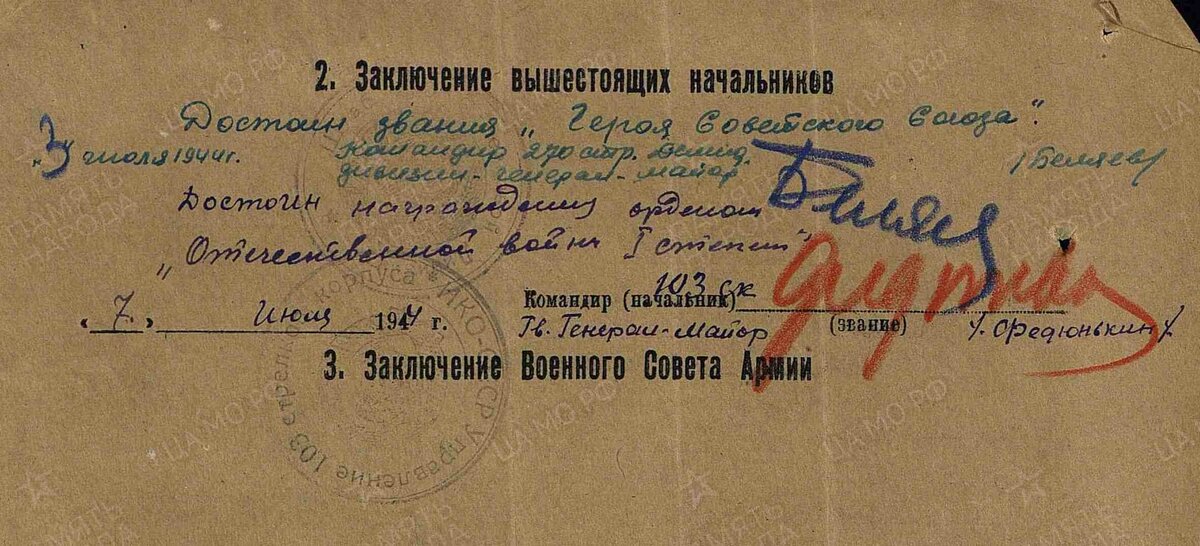 2. Заключение вышестоящих начальников
Достоин звания „Героя Советского Союза".
„3" июля 1944г. Командир 270 стр. Демид.
дивизии - генерал-майор Беляев /Беляев/
Достоин награждения орденом
„Отечественной войны I степени"
103 ск
Командир (начальник)
„7" Июля 1944 г. Гв. Генерал-Майор (звание) /. Федюнькин /.
3. Заключение Военного Совета Армии
Управление 103 стрел. корпуса НКО-СССР
ЦА МО РФ
ПАМЯТЬ НАРОДА